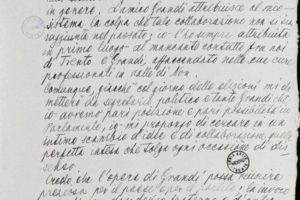 in genere. L'amico Grandi attribuisce al mio
sistema la colpa che tale collaborazione non si sia
raggiunta nel passato; io l'ho sempre attribuita
in primo luogo al mancante contatto fra noi
di Trento e Grandi, affaccendato nelle sue cure
professionali in Valle di Non.
Comunque, giacchè col giorno delle elezioni mi di-
metterò da segretario politico e tanto Grandi che
io avremo pari posizione e pari possibilità in
Parlamento, io mi propongo di cercare in un
intimo scambio d'idee e di collaborazione, quella
perfetta intesa che tolga ogni occasione di dis-
senso.
Credo che l'opera di Grandi possa riuscire
preziosa per il paese e per il partito; la invoco